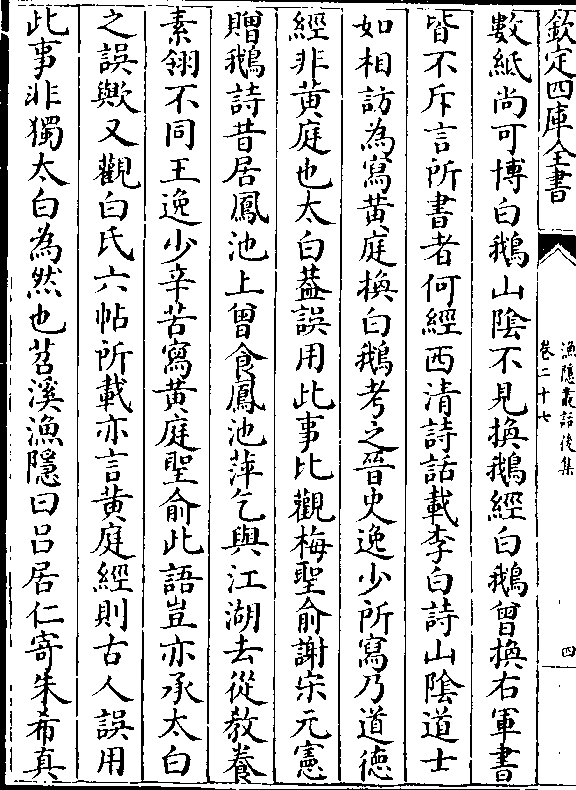 欽定四庫全書
漁隱叢話後集
卷二十七
四
數紙尚可博白鵝山隂不見換鵝經白鵝曾換右軍書
皆不斥言所書者何經西清詩話載李白詩山隂道士
如相訪為寫黄庭換白鵝考之晉史逸少所寫乃道德
經非黄庭也太白葢誤用此事比觀梅聖俞謝宋元憲
贈鵝詩昔居鳳池上曾食鳳池萍乞與江湖去從教養
素翎不同王逸少辛苦寫黄庭聖俞此語豈亦承太白
之誤歟又觀白氏六帖所載亦言黄庭經則古人誤用
此事非獨太白為然也苕溪漁隱曰吕居仁寄朱希真